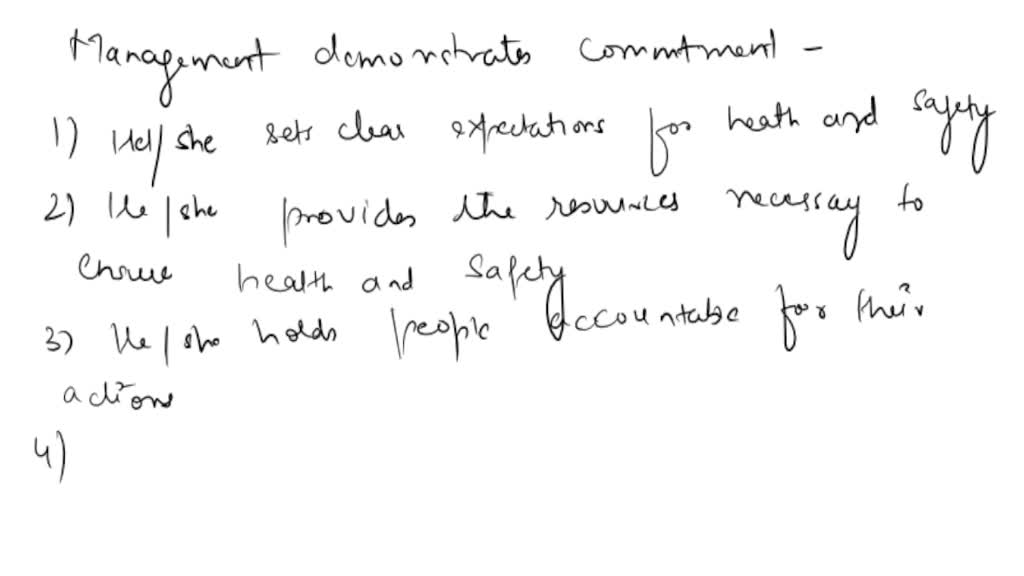 Management demonstrates commitment -
1) He/she sets clear expectations for heath and safety
2) He/she provides the resources necessay to
ensure health and safety
3) He/she holds people accountable for their
actions
4)